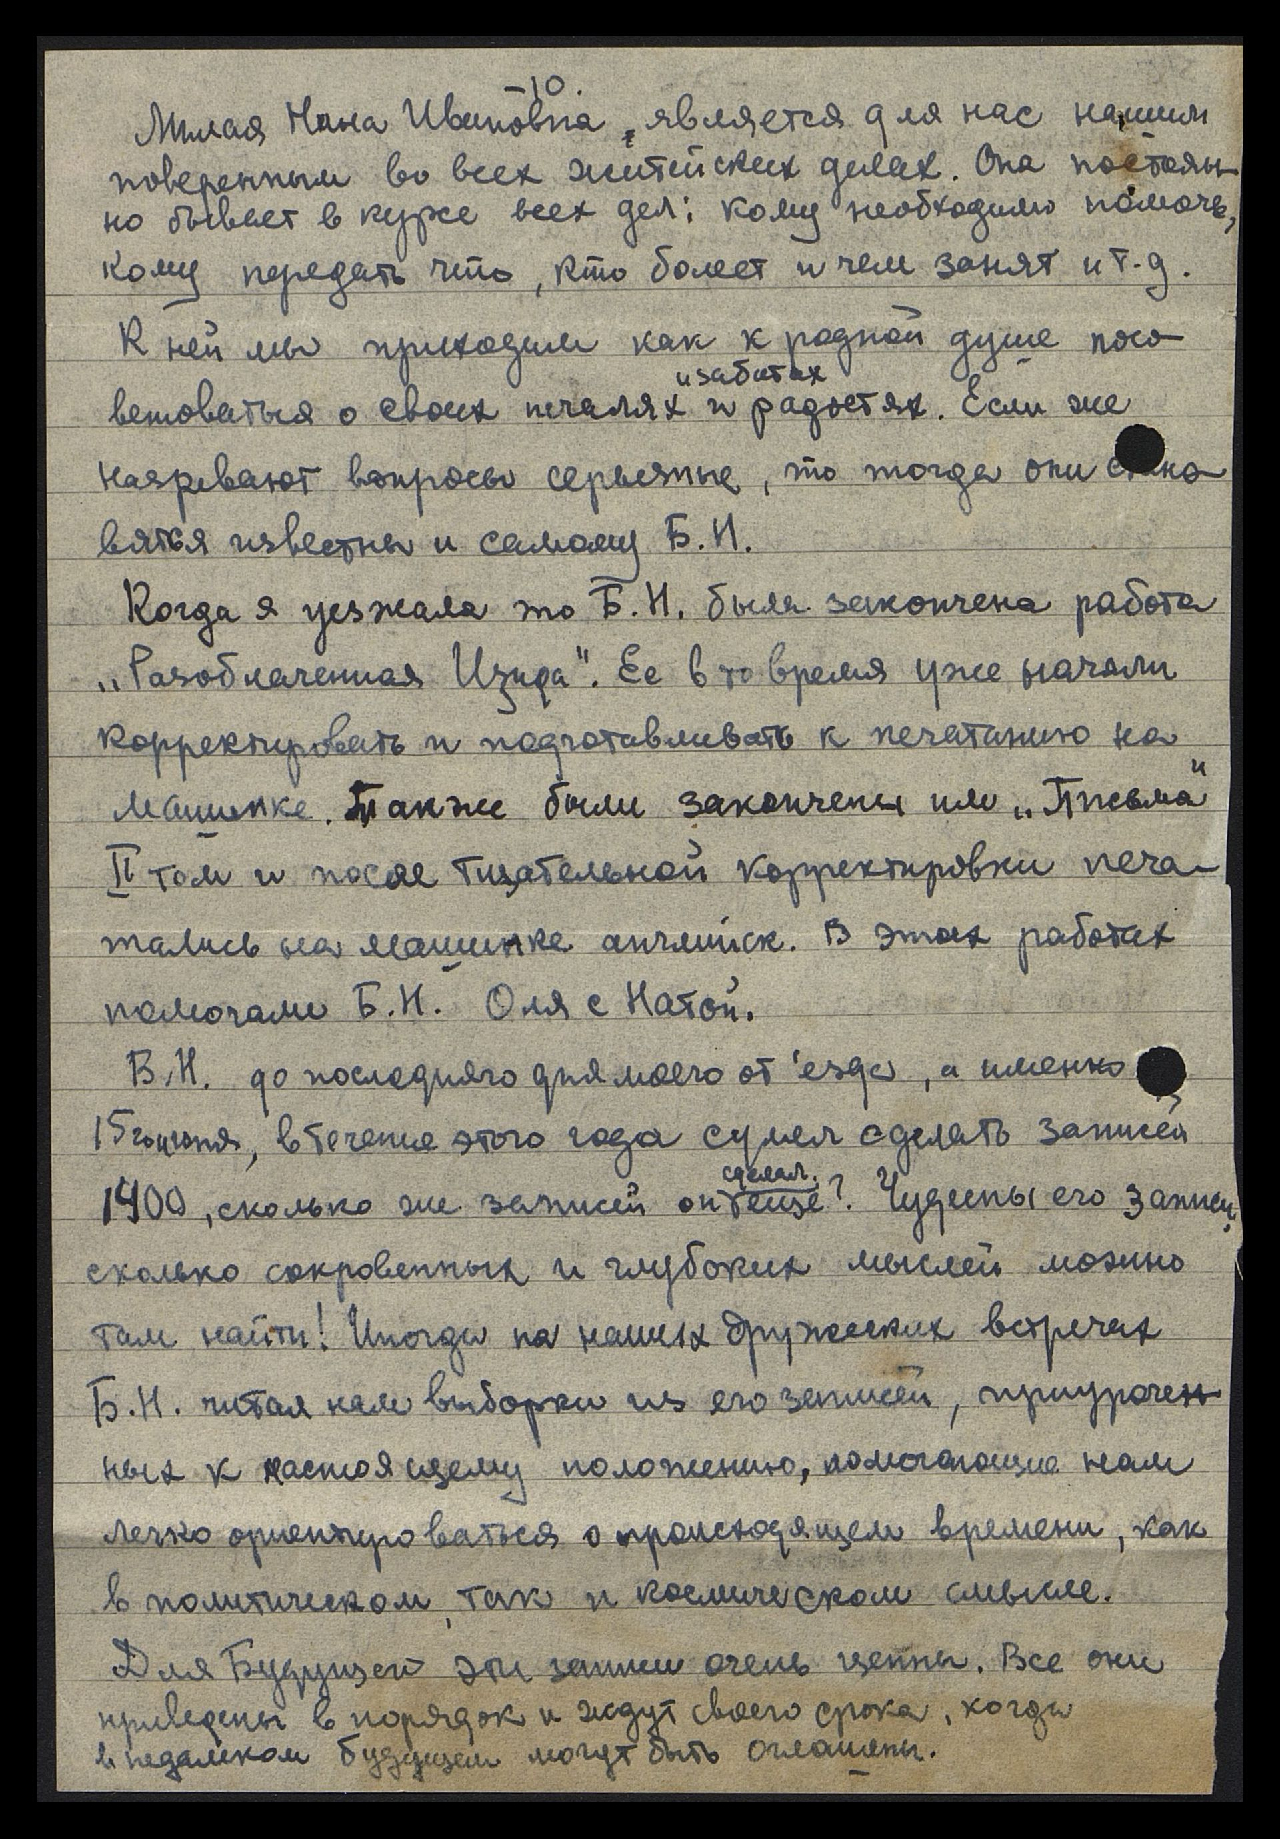 -10.
Милая Нина Ивановна, является для нас нашим
поверенным во всех житейских делах. Она постоян-
но бывает в курсе всех дел: кому необходимо помочь,
кому передать что, кто болеет и чем занят и т.д.
К ней мы приходим как к родной душе посо-
и заботах
ветоваться о своих печалях и радостях. Если же
назревают вопросы серьезные, то тогда они стано
вятся известны и самому Б.Н.
Когда я уезжала то Б.Н. была закончена работа
„Разоблаченная Изида". Ее в то время уже начали
корректировать и подготавливать к печатанию на
машинке. Также были закончены им „Письма"
II том и после тщательной корректировки печа-
тались на машинке английск. В этих работах
помогали Б.Н. Оля с Натой.
Б.Н. до последняго дня моего от'езда, а именно
15го июня, в течение этого года сумел сделать записей
сделал.
1400, сколько же записей он еще? Чудесны его записи,
сколько сокровенных и глубоких мыслей можно
там найти! Иногда на наших дружеских встречах
Б.Н. читал нам выборки из его записей, приурочен-
ных к настоящему положению, помогающие нам
легко ориентироваться о происходящем времени, как
в политическом, так и космическом смысле.
Для Будущего эти записи очень ценны. Все они
приведены в порядок и ждут своего срока, когда
в недалеком будущем могут быть оглашены.